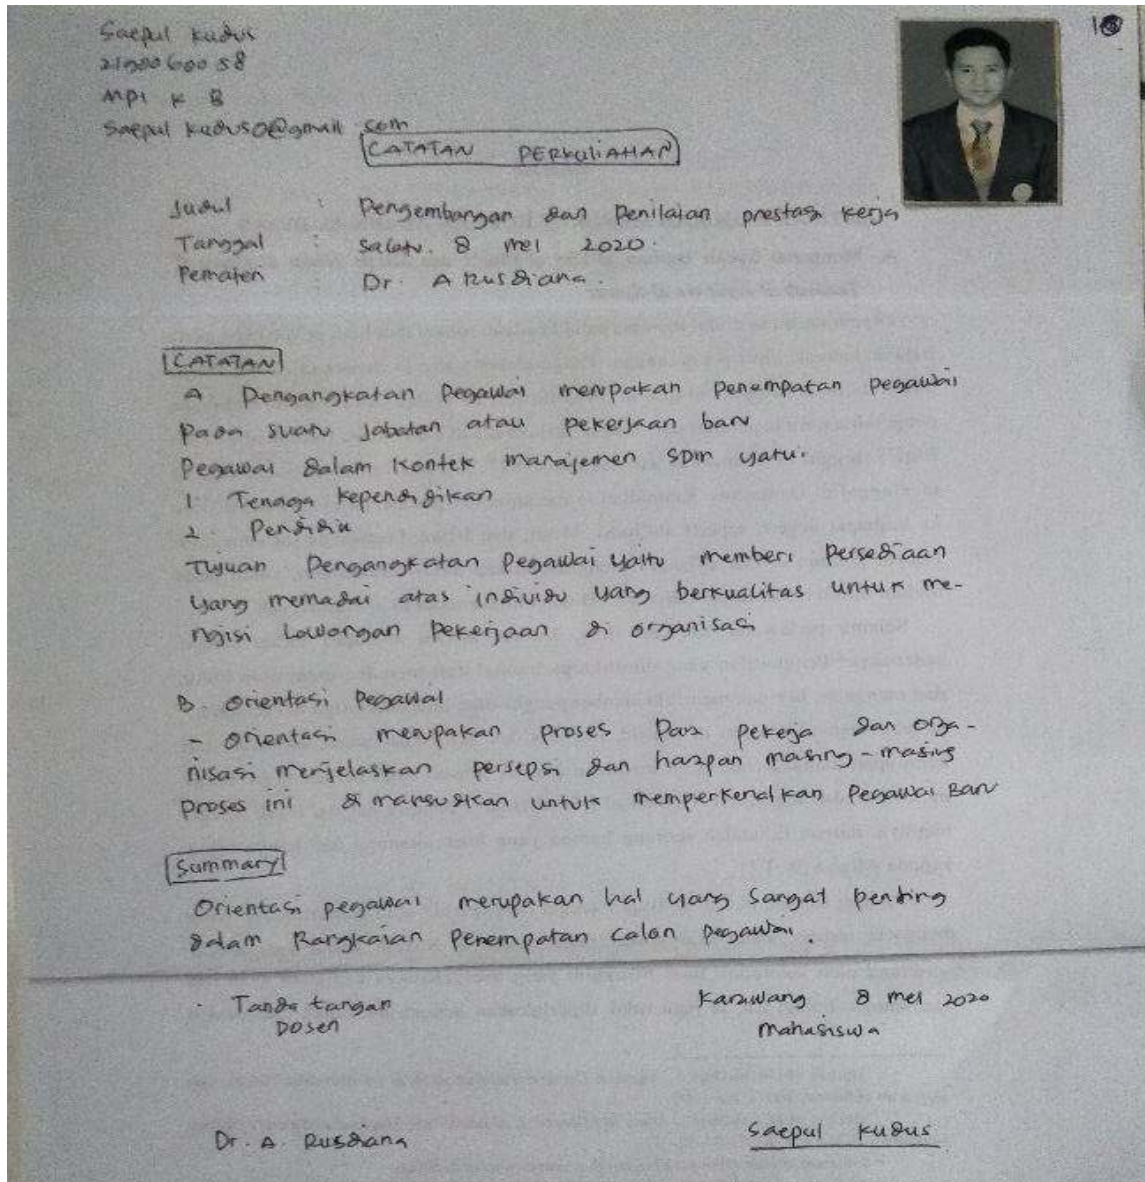 Saepul Kudus
MPI K B
Saepul Kudus0@gmail com
CATATAN PERKULIAHAN
Judul : Pengembangan dan Penilaian prestasi kerja
Tanggal : Sabtu. 8 mei 2020.
Pemateri : Dr. A Rusdiana.
CATATAN
A Pengangkatan Pegawai merupakan penempatan pegawai
pada suatu Jabatan atau pekerjaan baru
Pegawai dalam kontek manajemen SDM yatu.
1 Tenaga kependidikan
2. Pendidik
Tujuan Pengangkatan Pegawai yaitu memberi Persediaan
yang memadai atas individu yang berkualitas untuk me-
ngisi Lowongan pekerjaan di organisasi
B. Orientasi Pegawai
- Orientasi merupakan proses Para pekerja dan orga-
nisasi menjelaskan persepsi dan harapan masing-masing
proses ini di maksudkan untuk memperkenalkan Pegawai Baru
Summary
Orientasi pegawai merupakan hal yang Sangat penting
dalam Rangkaian Penempatan calon pegawai.
Tanda tangan Karawang 8 mei 2020
Dosen Mahasiswa
Dr. A. Rusdiana Saepul Kudus